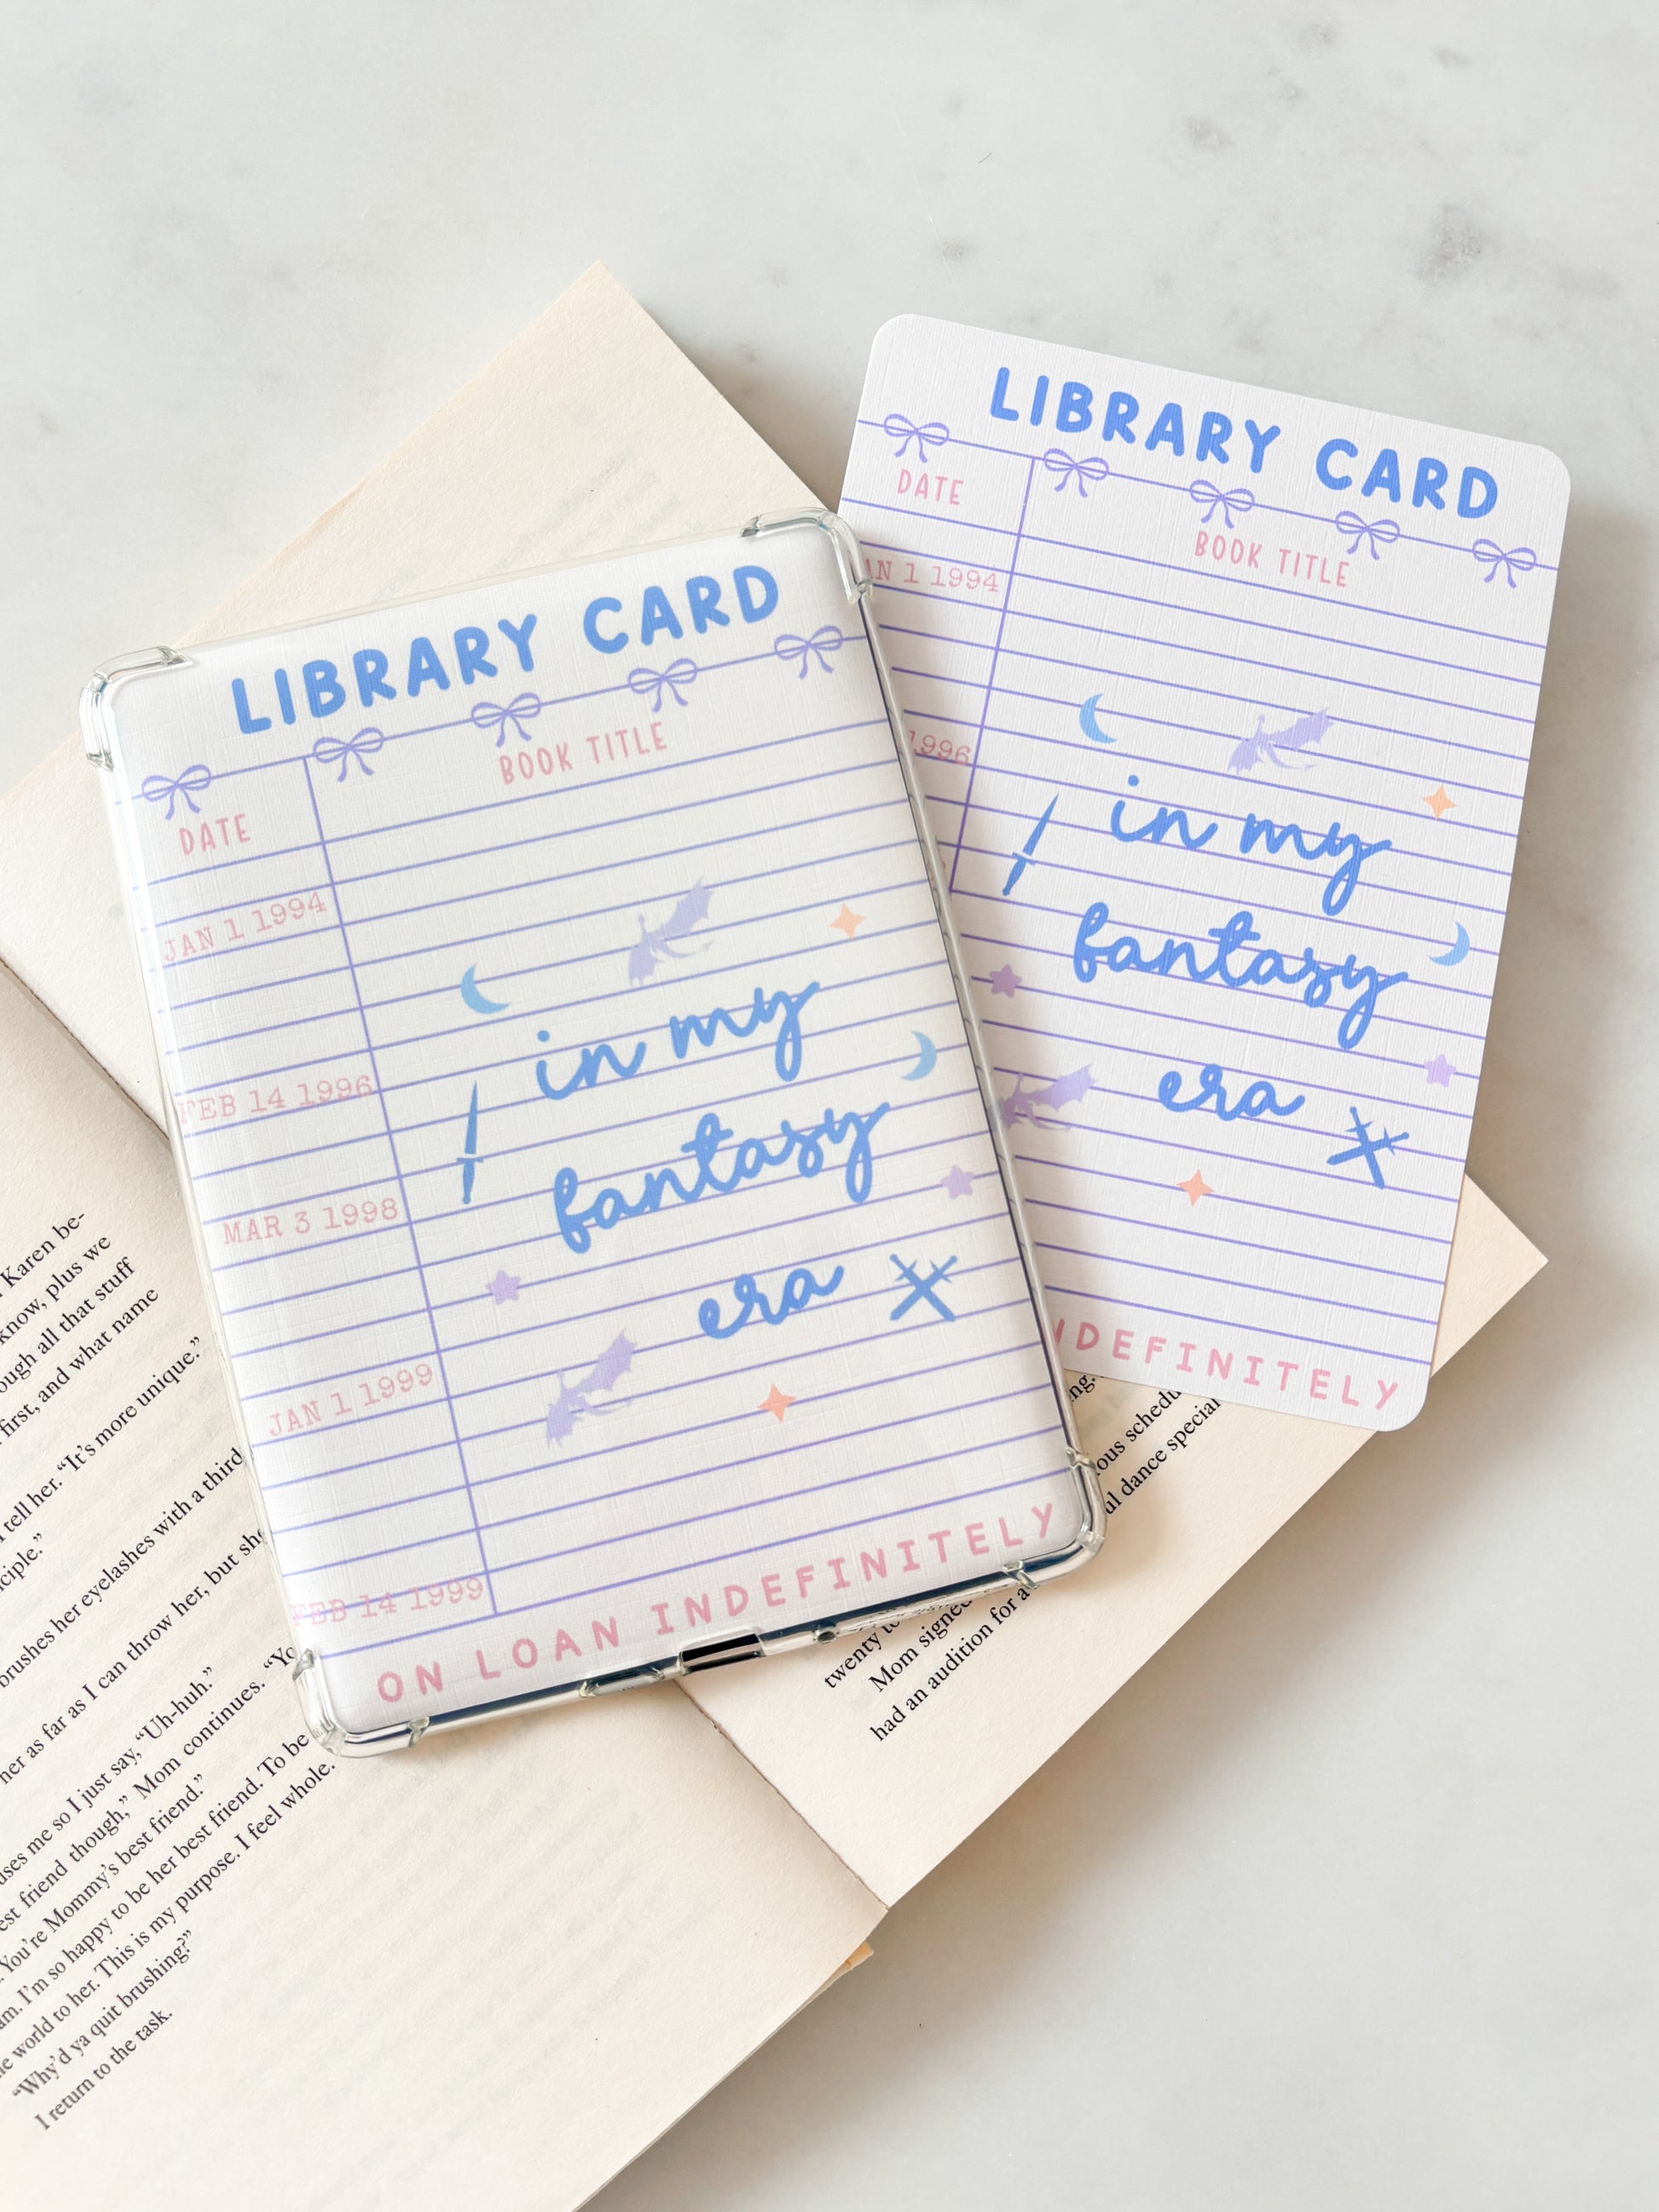 LIBRARY CARD
DATE
BOOK TITLE
JAN 1 1994
FEB 14 1996
MAR 3 1998
JAN 1 1999
FEB 14 1999
in my
fantasy
era
ON LOAN INDEFINITELY
LIBRARY CARD
DATE
BOOK TITLE
1 1994
1996
in my
fantasy
era
NDEFINITELY
Karen be-
know, plus we
ough all that stuff
first, and what name
tell her. “It’s more unique.”
ciple.”
brushes her eyelashes with a third
her as far as I can throw her, but she
uses me so I just say, “Uh-huh.”
est friend though,” Mom continues. “Yo
You’re Mommy’s best friend.”
am. I’m so happy to be her best friend. To be
he world to her. This is my purpose. I feel whole.
“Why’d ya quit brushing?”
I return to the task.
ous schedu
ul dance special
twenty to
Mom signed
had an audition for a